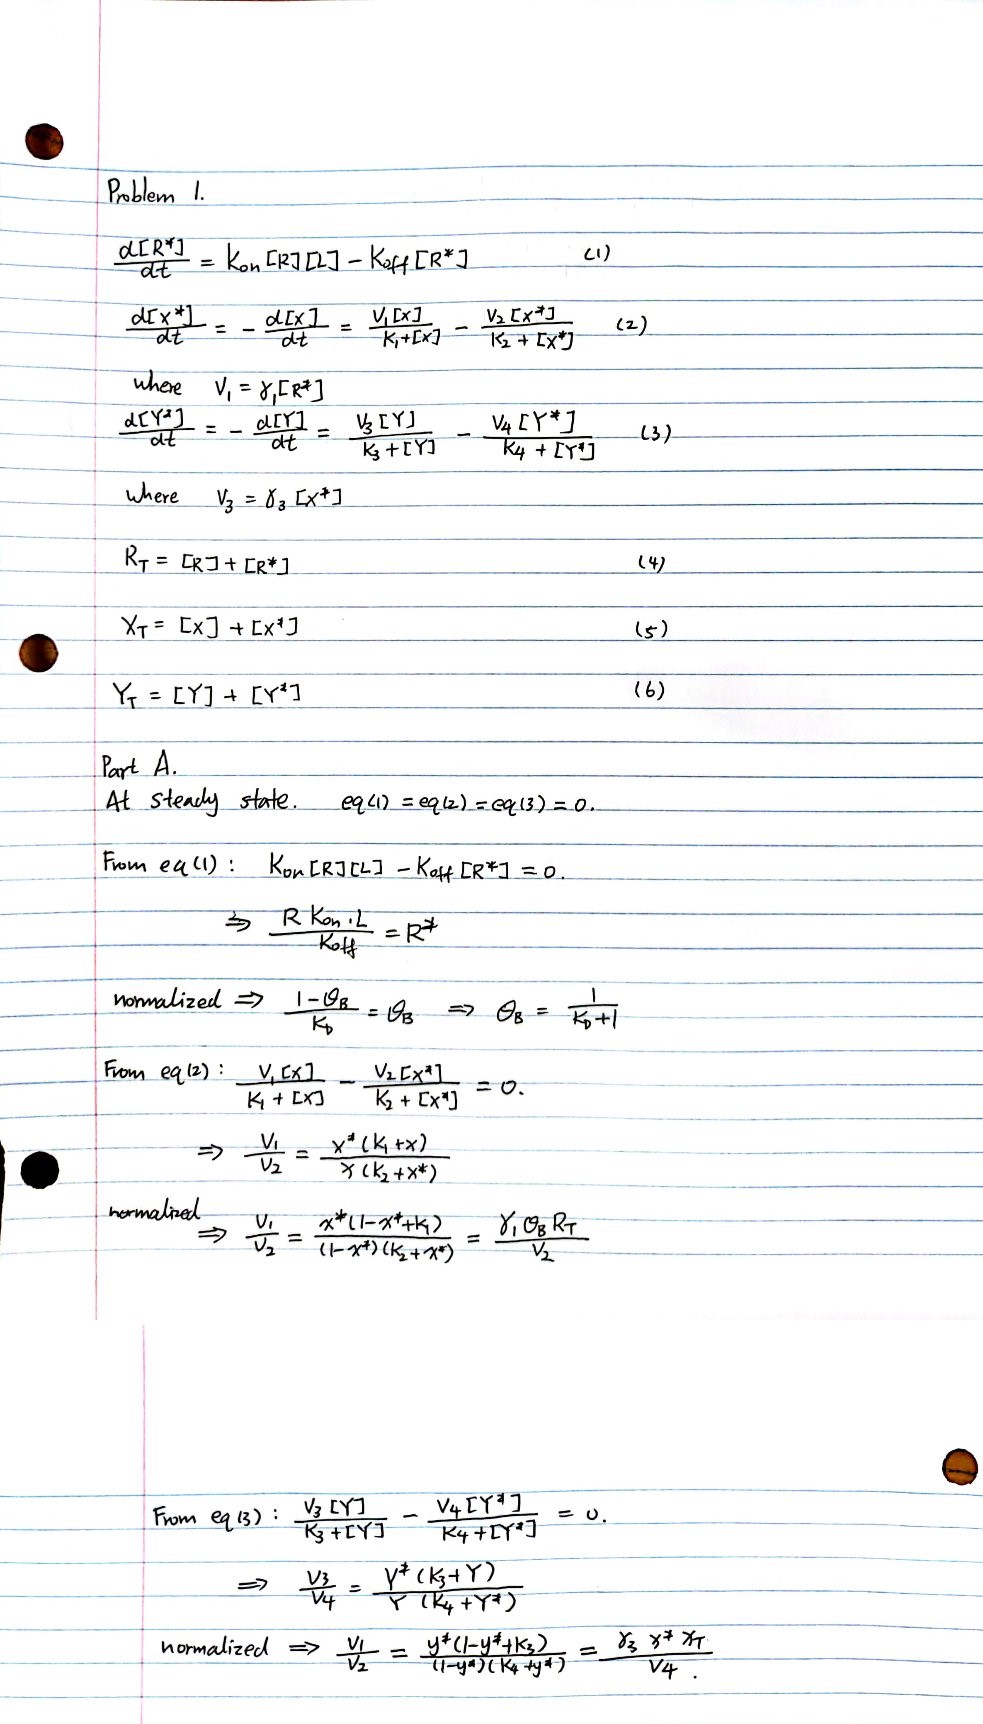 Problem 1.
d[R*]/dt = Kon [R][L] - Koff [R*] (1)
d[X*]/dt = - d[X]/dt = V₁[X]/(K₁+[X]) - V₂[X*]/(K₂+[X*]) (2)
where V₁ = γ₁[R*]
d[Y*]/dt = - d[Y]/dt = V₃[Y]/(K₃+[Y]) - V₄[Y*]/(K₄+[Y*]) (3)
where V₃ = γ₃[X*]
R_T = [R] + [R*] (4)
X_T = [X] + [X*] (5)
Y_T = [Y] + [Y*] (6)
Part A.
At steady state. eq(1) = eq(2) = eq(3) = 0.
From eq(1) : Kon [R][L] - Koff [R*] = 0.
⇒ R Kon·L/Koff = R*
normalized ⇒ (1-θ_B)/K_D = θ_B ⇒ θ_B = 1/(K_D+1)
From eq(2) : V₁[X]/(K₁+[X]) - V₂[X*]/(K₂+[X*]) = 0.
⇒ V₁/V₂ = X*(K₁+X)/(X(K₂+X*))
normalized ⇒ V₁/V₂ = x*(1-x*+K₁)/((1-x*)(K₂+x*)) = γ₁θ_B R_T/V₂
From eq(3) : V₃[Y]/(K₃+[Y]) - V₄[Y*]/(K₄+[Y*]) = 0.
⇒ V₃/V₄ = Y*(K₃+Y)/(Y(K₄+Y*))
normalized ⇒ V₁/V₂ = y*(1-y*+K₃)/((1-y*)(K₄+y*)) = γ₃ x* X_T/V₄.